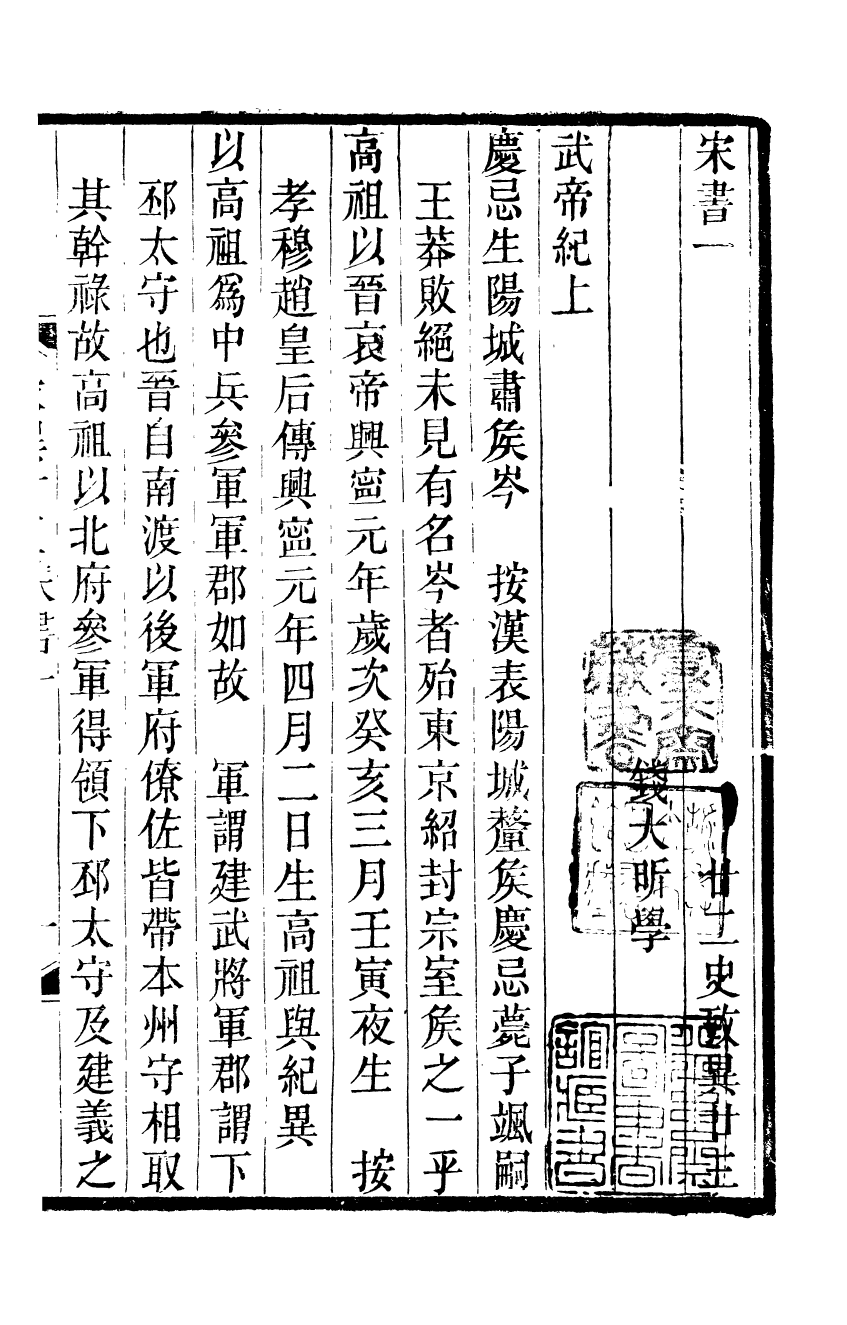 宋書一 廿二史攷異廿三
錢大昕學
武帝紀上
慶忌生陽城肅矦岑 按漢表陽城釐矦慶忌薨子颯嗣
王莽敗絕未見有名岑者殆東京紹封宗室矦之一乎
高祖以晉哀帝興寍元年歲次癸亥三月壬寅夜生 按
孝穆趙皇后傳興寍元年四月二日生高祖與紀異
以高祖爲中兵參軍軍郡如故 軍謂建武將軍郡謂下
邳太守也晉自南渡以後軍府僚佐皆帶本州守相取
其幹祿故高祖以北府參軍得領下邳太守及建義之